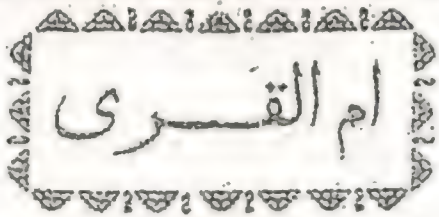 ام القرى